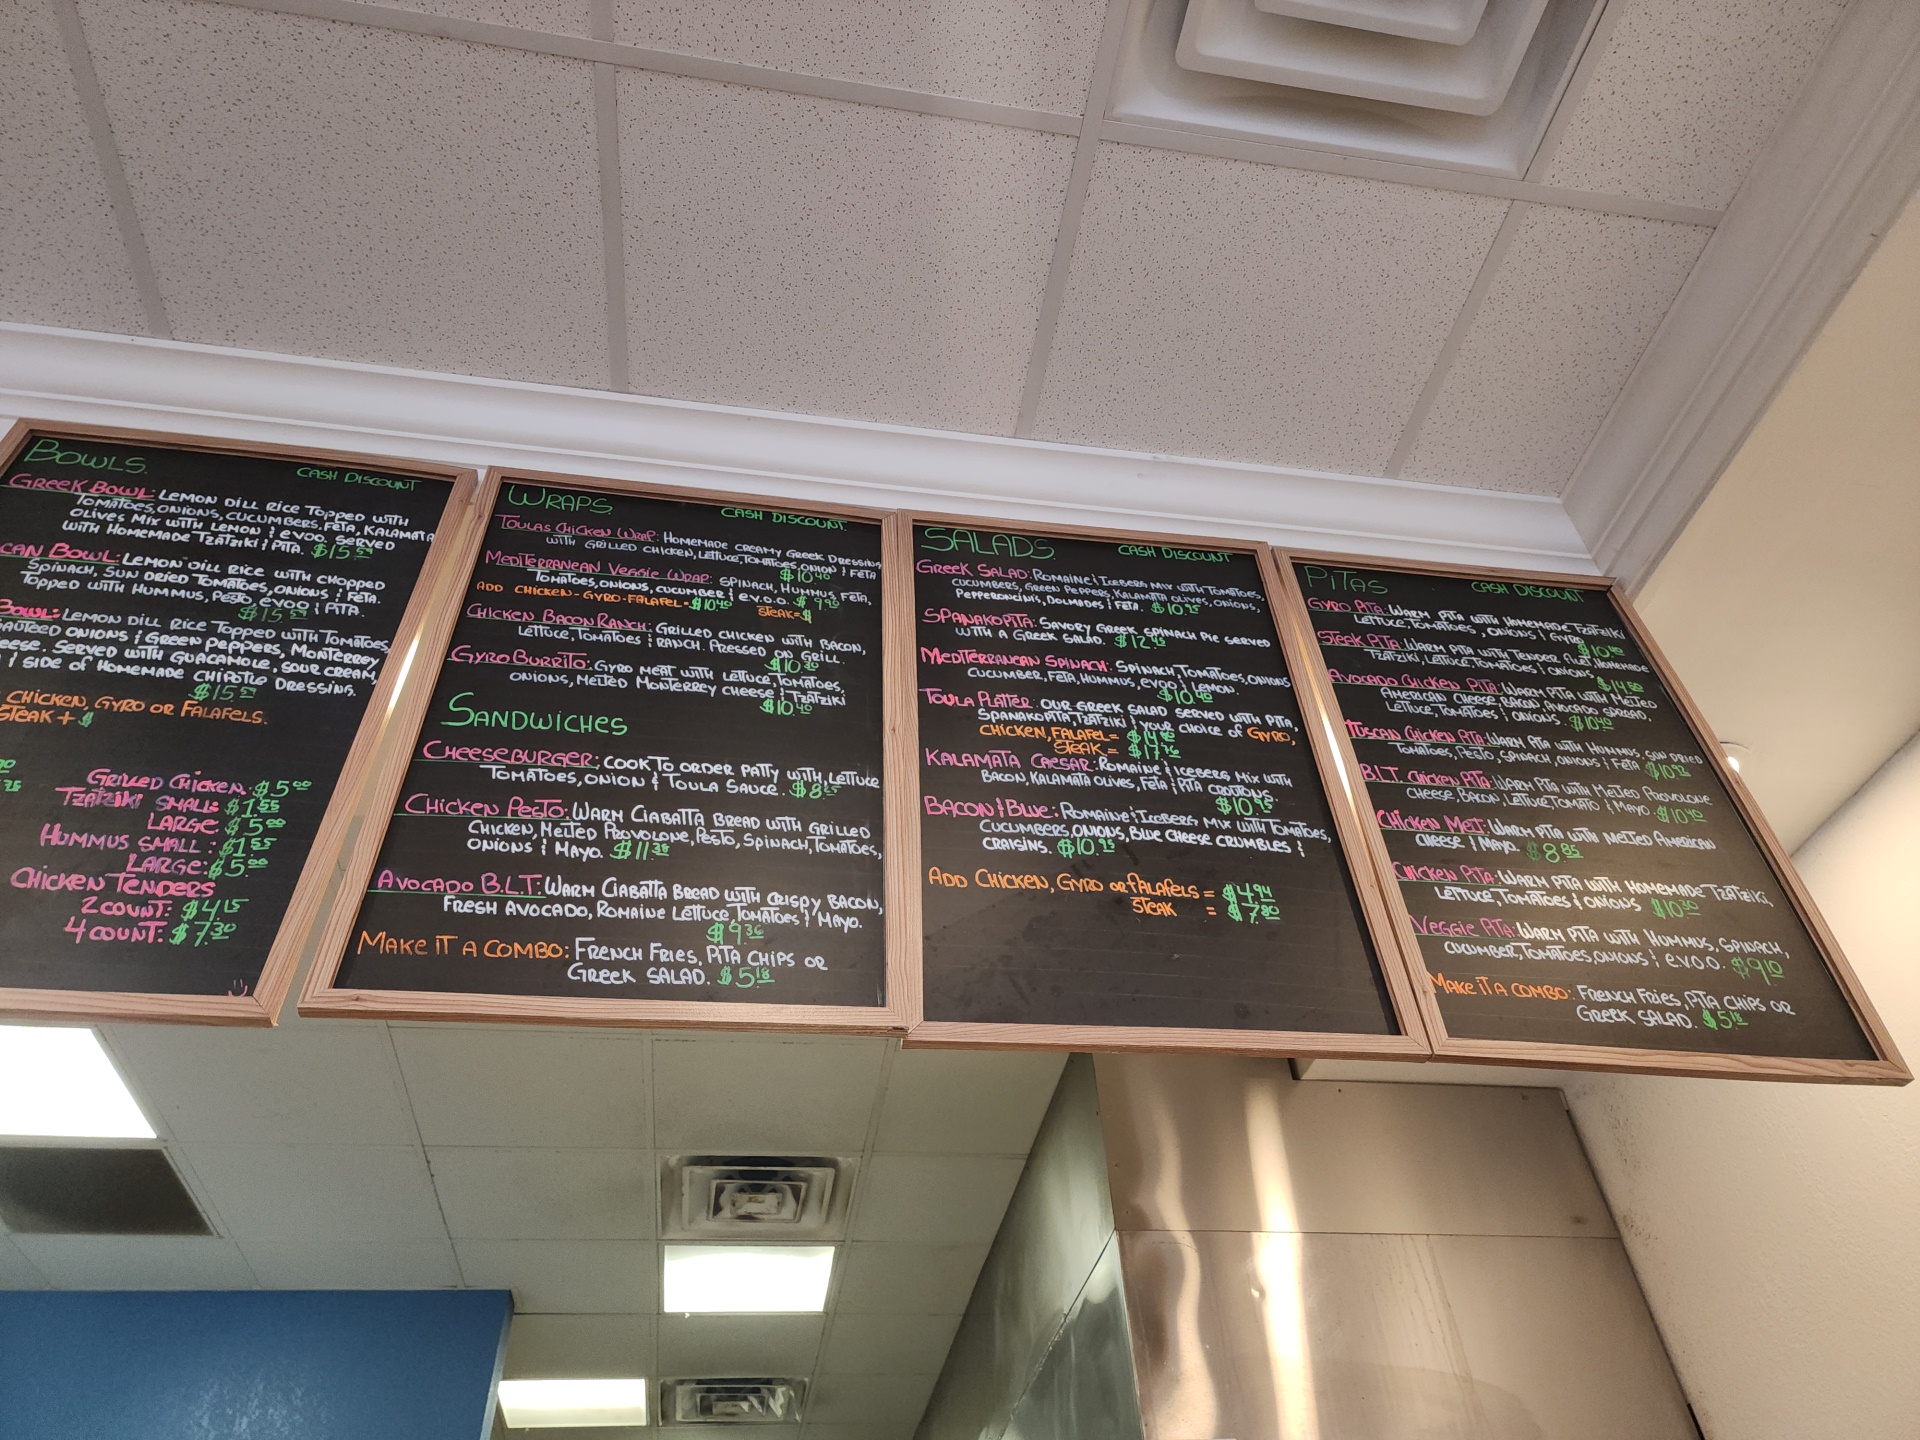 BOWLS.
CASH DISCOUNT
GREEK BOWL: LEMON DILL RICE TOPPED WITH
TOMATOES, ONIONS, CUCUMBERS, FETA, KALAMATA
OLIVES MIX WITH LEMON & EVOO. SERVED
WITH HOMEMADE TZATZIKI & PITA. $15
CAN BOWL: LEMON DILL RICE WITH CHOPPED
SPINACH, SUN DRIED TOMATOES, ONIONS & FETA.
TOPPED WITH HUMMUS, PESTO, EVOO & PITA.
$15
BOWL: LEMON DILL RICE TOPPED WITH TOMATOES,
SAUTEED ONIONS & GREEN PEPPERS, MONTERREY
CHEESE. SERVED WITH GUACAMOLE, SOUR CREAM,
& SIDE OF HOMEMADE CHIPOTLE DRESSING.
$15
CHICKEN, GYRO OR FALAFELS.
STEAK + $
GRILLED CHICKEN. $5.00
TZATZIKI SMALL: $1.55
LARGE. $5.00
HUMMUS SMALL: $1.55
LARGE: $5.00
CHICKEN TENDERS
2 COUNT: $4.15
4 COUNT: $7.30
WRAPS.
CASH DISCOUNT.
TOULAS CHICKEN WRAP: HOMEMADE CREAMY GREEK DRESSING
WITH GRILLED CHICKEN, LETTUCE, TOMATOES, ONION & FETA
$10.40
MEDITERRANEAN VEGGIE WRAP: SPINACH, HUMMUS, FETA,
TOMATOES, ONIONS, CUCUMBER & E.V.O.O. $9.90
ADD CHICKEN-GYRO-FALAFEL=$10.40 STEAK=$
CHICKEN BACON RANCH: GRILLED CHICKEN WITH BACON,
LETTUCE, TOMATOES & RANCH. PRESSED ON GRILL.
$10.30
GYRO BURRITO: GYRO MEAT WITH LETTUCE, TOMATOES,
ONIONS, MELTED MONTERREY CHEESE & TZATZIKI
$10.40
SANDWICHES
CHEESEBURGER: COOK TO ORDER PATTY WITH, LETTUCE
TOMATOES, ONION & TOULA SAUCE. $8
CHICKEN PESTO: WARM CIABATTA BREAD WITH GRILLED
CHICKEN, MELTED PROVOLONE, PESTO, SPINACH, TOMATOES,
ONIONS & MAYO. $11.38
AVOCADO B.L.T: WARM CIABATTA BREAD WITH CRISPY BACON,
FRESH AVOCADO, ROMAINE LETTUCE, TOMATOES & MAYO.
$9.36
MAKE IT A COMBO: FRENCH FRIES, PITA CHIPS OR
GREEK SALAD. $5.18
SALADS
CASH DISCOUNT
GREEK SALAD: ROMAINE & ICEBERG MIX WITH TOMATOES,
CUCUMBERS, GREEN PEPPERS, KALAMATA OLIVES, ONIONS,
PEPPERONCINIS, DOLMADES & FETA. $10.95
SPANAKOPITA: SAVORY GREEK SPINACH PIE SERVED
WITH A GREEK SALAD. $12.45
MEDITERRANEAN SPINACH: SPINACH, TOMATOES, ONIONS
CUCUMBER, FETA, HUMMUS, EVOO & LEMON.
$10.40
TOULA PLATTER: OUR GREEK SALAD SERVED WITH PITA,
SPANAKOPITA, TZATZIKI & YOUR CHOICE OF GYRO,
CHICKEN, FALAFEL= $14
STEAK = $17.76
KALAMATA CAESAR: ROMAINE & ICEBERG MIX WITH
BACON, KALAMATA OLIVES, FETA & PITA CROUTONS.
$10.95
BACON & BLUE: ROMAINE & ICEBERG MIX WITH TOMATOES,
CUCUMBERS, ONIONS, BLUE CHEESE CRUMBLES &
CRAISINS. $10.95
ADD CHICKEN, GYRO OR FALAFELS = $4.94
STEAK = $7.80
PITAS
CASH DISCOUNT
GYRO PITA: WARM PITA WITH HOMEMADE TZATZIKI
LETTUCE, TOMATOES, ONIONS & GYRO
$10.40
STEAK PITA: WARM PITA WITH TENDER FILET, HOMEMADE
TZATZIKI, LETTUCE, TOMATOES & ONIONS
$14.50
AVOCADO CHICKEN PITA: WARM PITA WITH MELTED
AMERICAN CHEESE, BACON, AVOCADO SPREAD,
LETTUCE, TOMATOES & ONIONS. $10.40
TUSCAN CHICKEN PITA: WARM PITA WITH HUMMUS, SUN DRIED
TOMATOES, PESTO, SPINACH, ONIONS & FETA $10
B.L.T. CHICKEN PITA: WARM PITA WITH MELTED PROVOLONE
CHEESE, BACON, LETTUCE TOMATO & MAYO. $10.40
CHICKEN MELT: WARM PITA WITH MELTED AMERICAN
CHEESE & MAYO. $8.85
CHICKEN PITA: WARM PITA WITH HOMEMADE TZATZIKI,
LETTUCE, TOMATOES & ONIONS $10.30
VEGGIE PITA: WARM PITA WITH HUMMUS, SPINACH,
CUCUMBER, TOMATOES, ONIONS & E.V.O.O. $9.10
MAKE IT A COMBO: FRENCH FRIES, PITA CHIPS OR
GREEK SALAD. $5.18